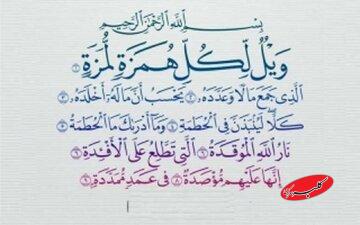 بِسْمِ اللَّهِ الرَّحْمَٰنِ الرَّحِيمِ
وَيْلٌ لِّكُلِّ هُمَزَةٍ لُّمَزَةٍ ١
الَّذِي جَمَعَ مَالًا وَعَدَّدَهُ ٢ يَحْسَبُ أَنَّ مَالَهُ أَخْلَدَهُ ٣
كَلَّا لَيُنبَذَنَّ فِي الْحُطَمَةِ ٤ وَمَا أَدْرَاكَ مَا الْحُطَمَةُ ٥
نَارُ اللَّهِ الْمُوقَدَةُ ٦ الَّتِي تَطَّلِعُ عَلَى الْأَفْئِدَةِ ٧
إِنَّهَا عَلَيْهِم مُّؤْصَدَةٌ ٨ فِي عَمَدٍ مُّمَدَّدَةٍ ٩